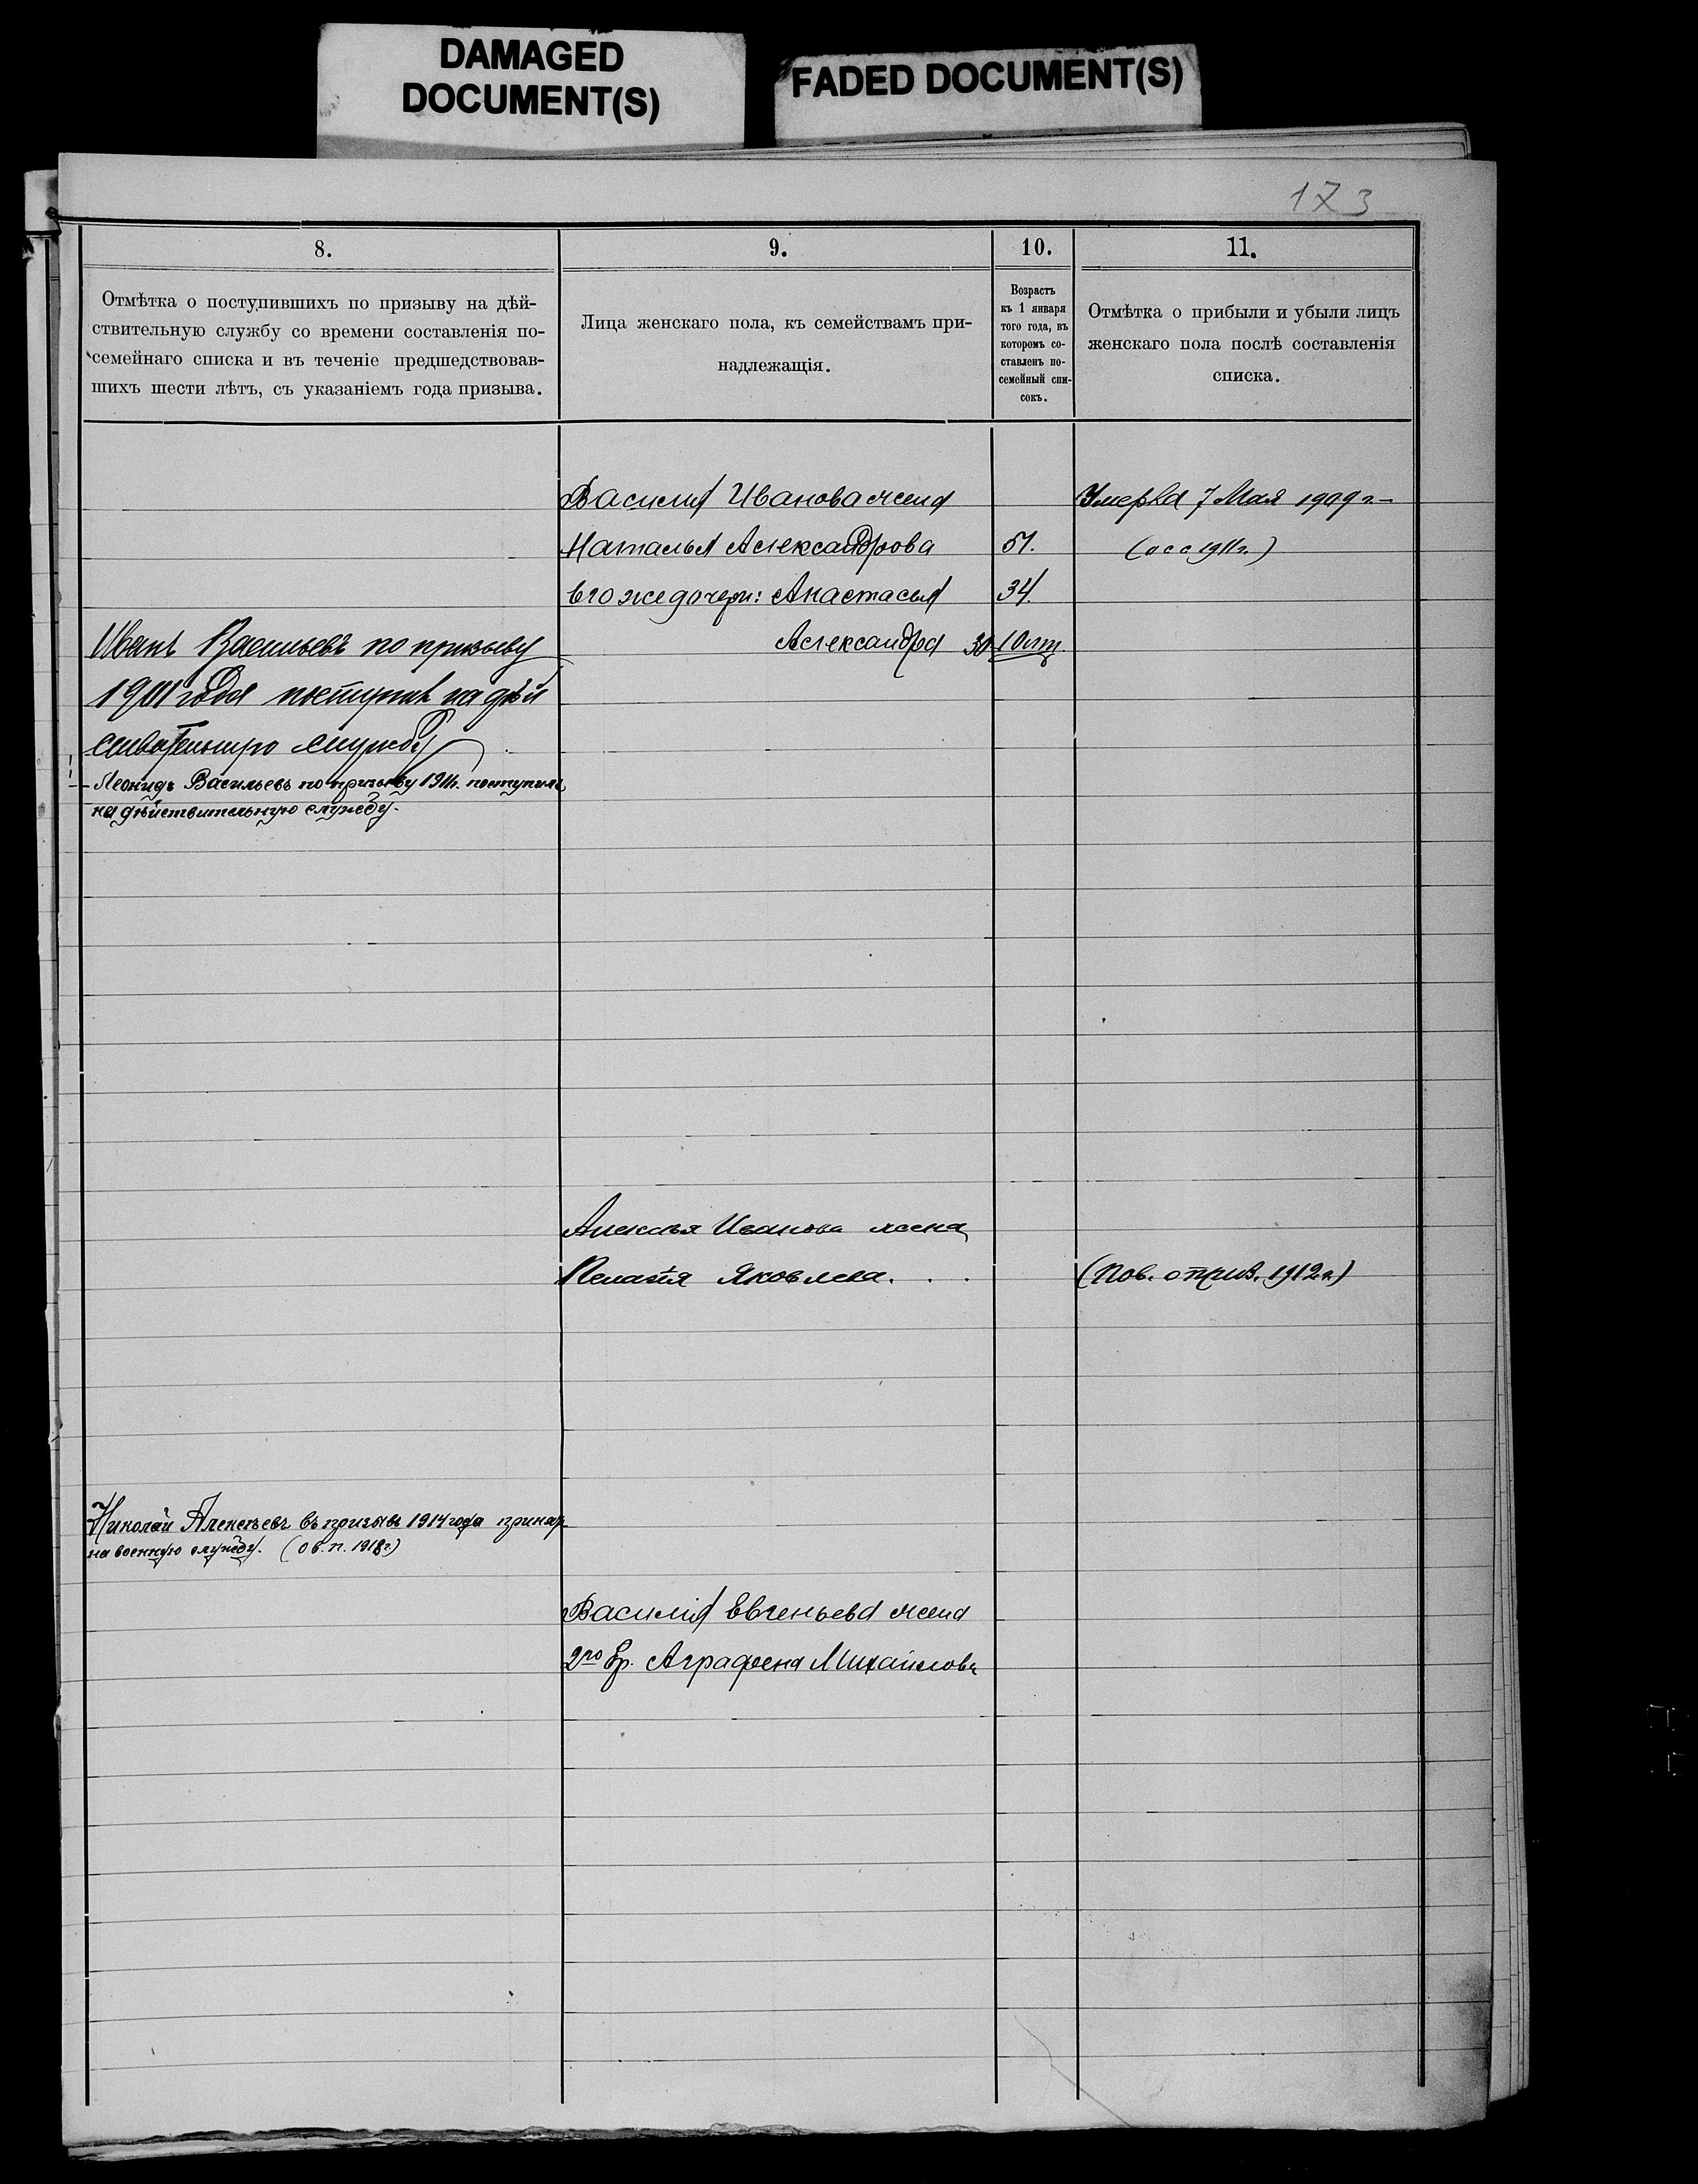 DAMAGED
DOCUMENT(S)
FADED DOCUMENT(S)
173
8.
Отмѣтка о поступившихъ по призыву на дѣй-
ствительную службу со времени составленія по-
семейнаго списка и въ теченіе предшедствовав-
шихъ шести лѣтъ, съ указаніемъ года призыва.
9.
Лица женскаго пола, къ семействамъ при-
надлежащія.
10.
Возрастъ
къ 1 января
того года, въ
которомъ со-
ставленъ по-
семейный спи-
сокъ.
11.
Отмѣтка о прибыли и убыли лицъ
женскаго пола послѣ составленія
списка.
Василія Иванова жена
Умерла 7 Мая 1909 г.
Наталья Александрова 51.
(о с с 1911 г.)
его же дочери: Анастасья 34.
Александра 30
Иванъ Васильевъ по призыву
1901 года поступилъ на дѣй
ствительную службу
Леонидъ Васильевъ по призыву 1911г. поступилъ
на дѣйствительную службу.
Алексѣя Иванова жена
Пелагія Яковлева. . .
(Пов. о приб. 1912 г.)
Николай Алексѣевъ въ призывъ 1914 года принят
на военную службу. (о в. п. 1918 г.)
Василія Евгеньева жена
2го бр. Аграфена Михайлова